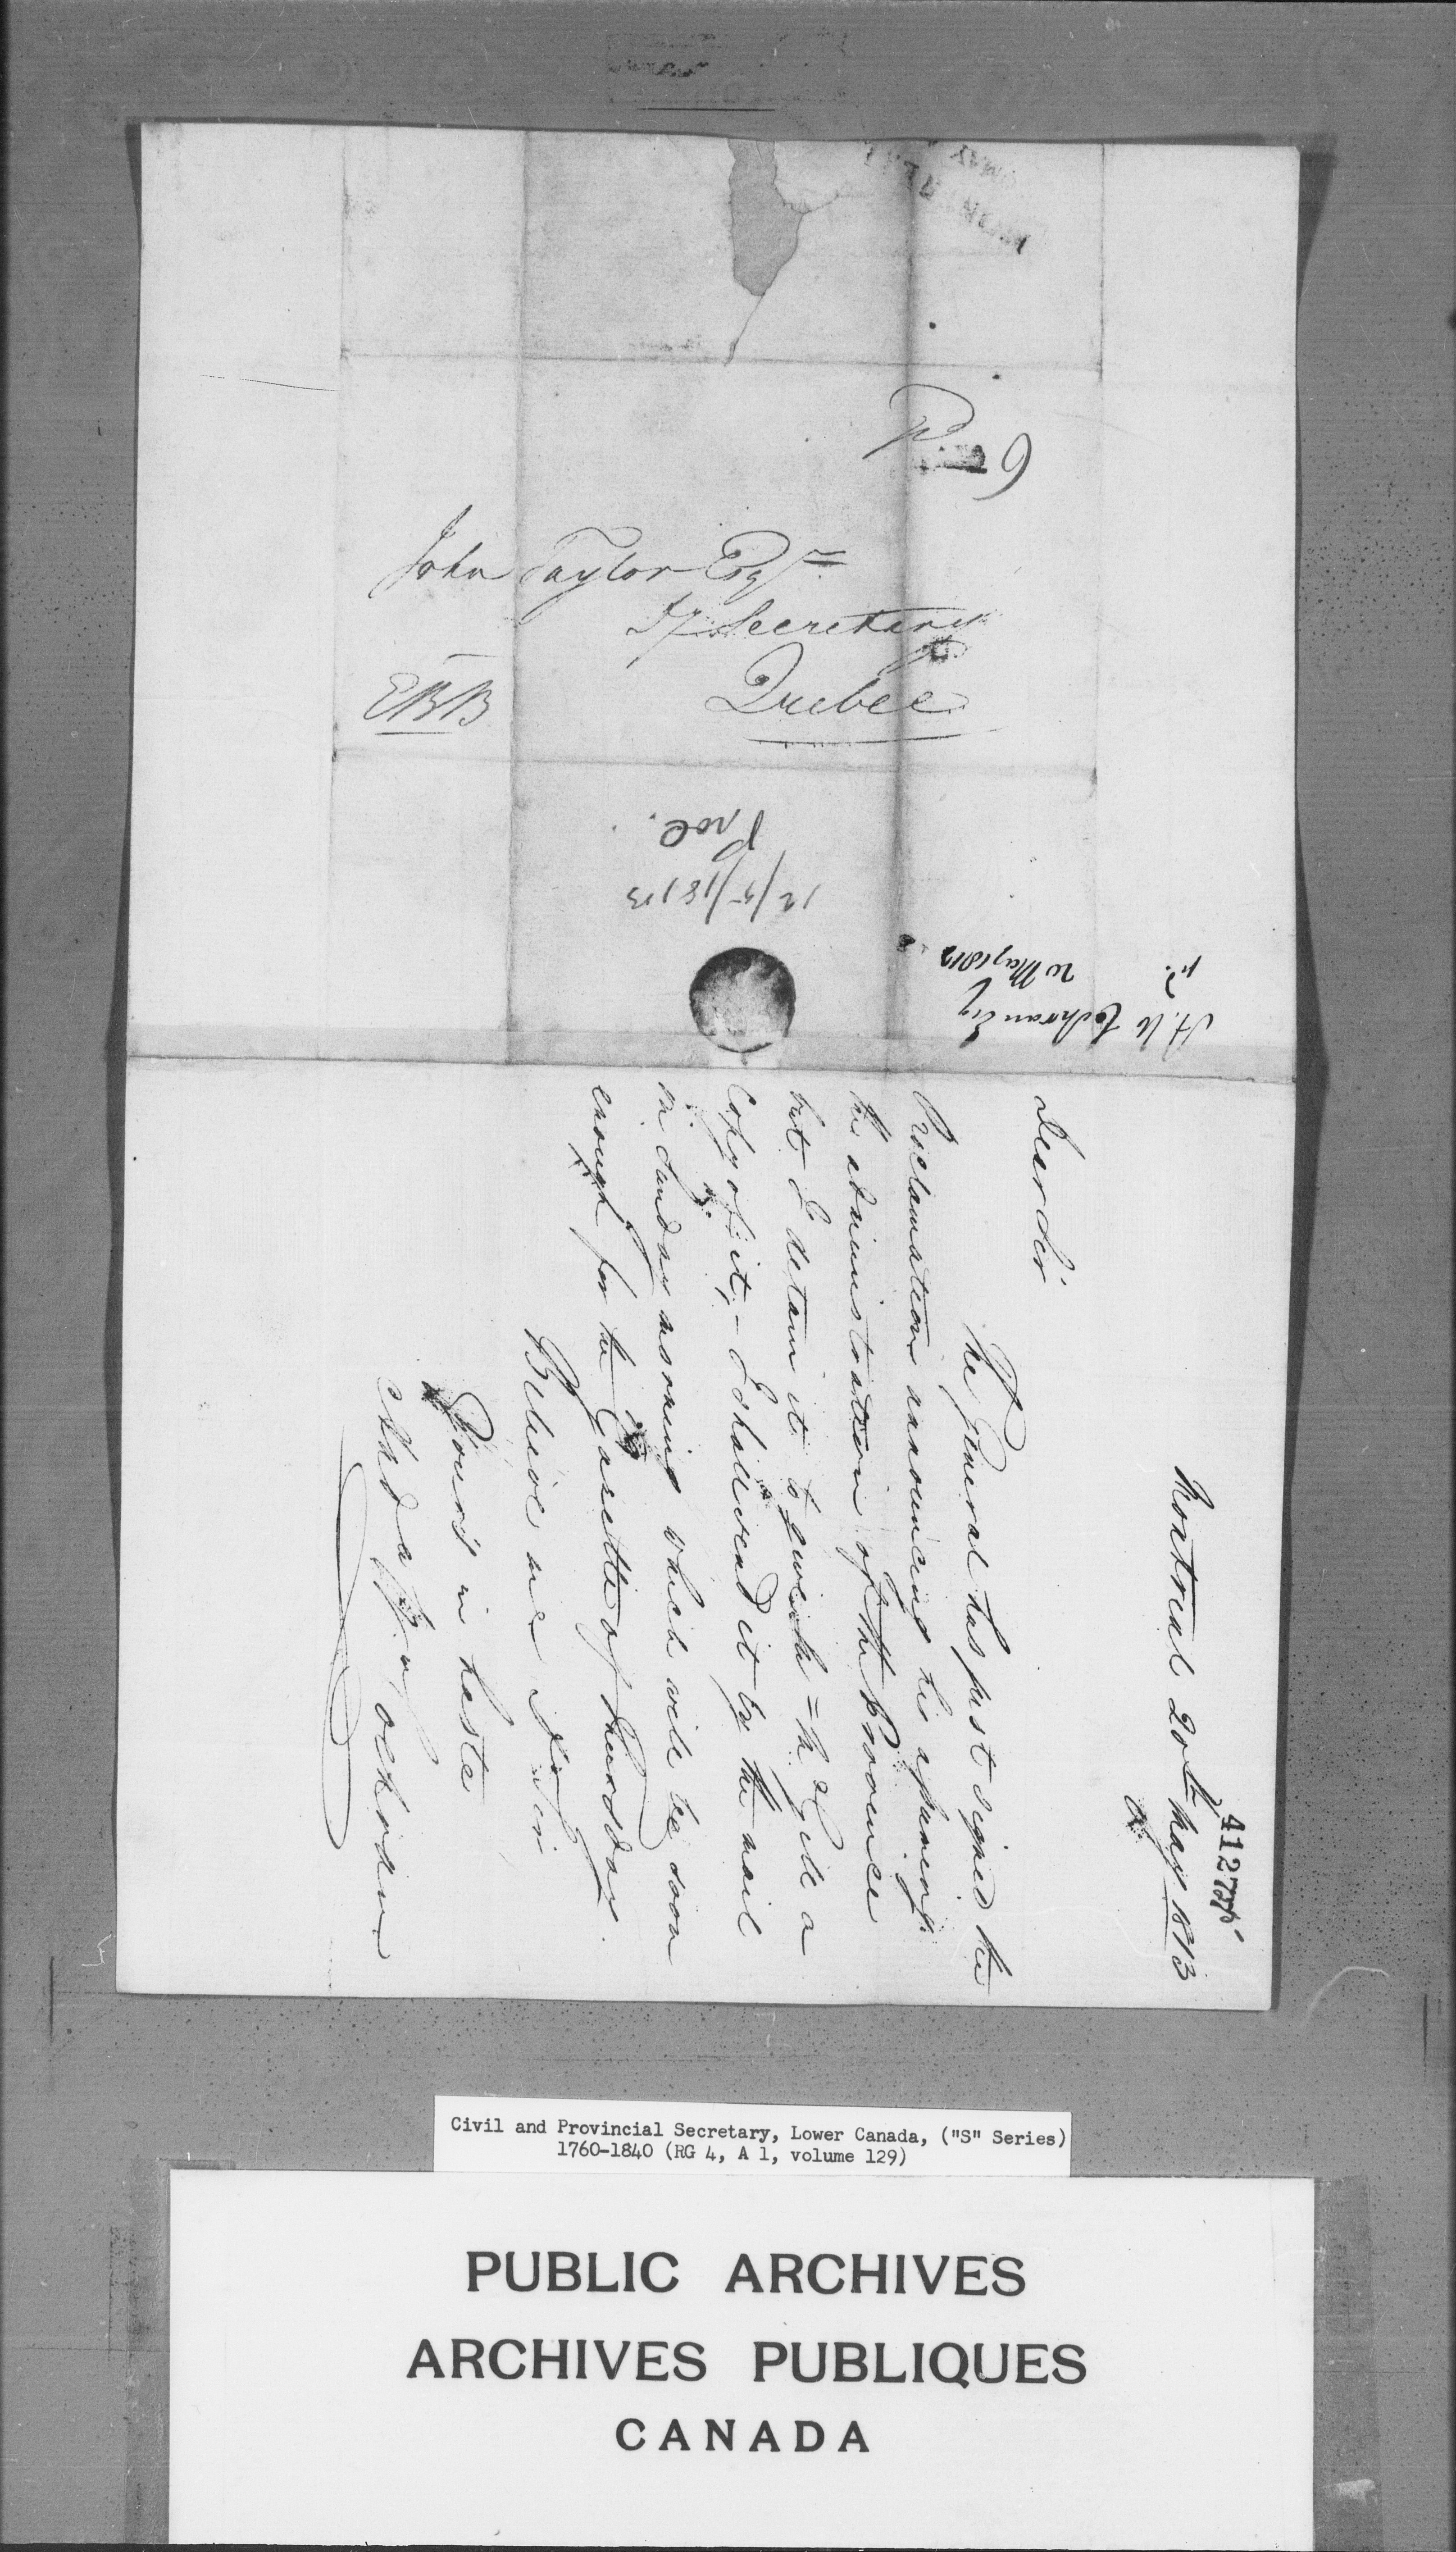 P.d 6
John Taylor Esqr
Dy Secretary
Quebec
EBB
Proc.
12/5/1813
A. W. Cochran Esq
20 May 1813
Montreal 20th May 1813
Dear Sir
The General has just signed the
Proclamation announcing his assuming
the administration of the Province
but I detain it to give the
copy of it, - I shall send it by the mail
on Sunday morning which will be soon
enough for the Gazette of Thursday.
Believe me Dr Sir
Yours in haste
And. Wm Cochran
Civil and Provincial Secretary, Lower Canada, ("S" Series)
1760-1840 (RG 4, A 1, volume 129)
PUBLIC ARCHIVES
ARCHIVES PUBLIQUES
CANADA